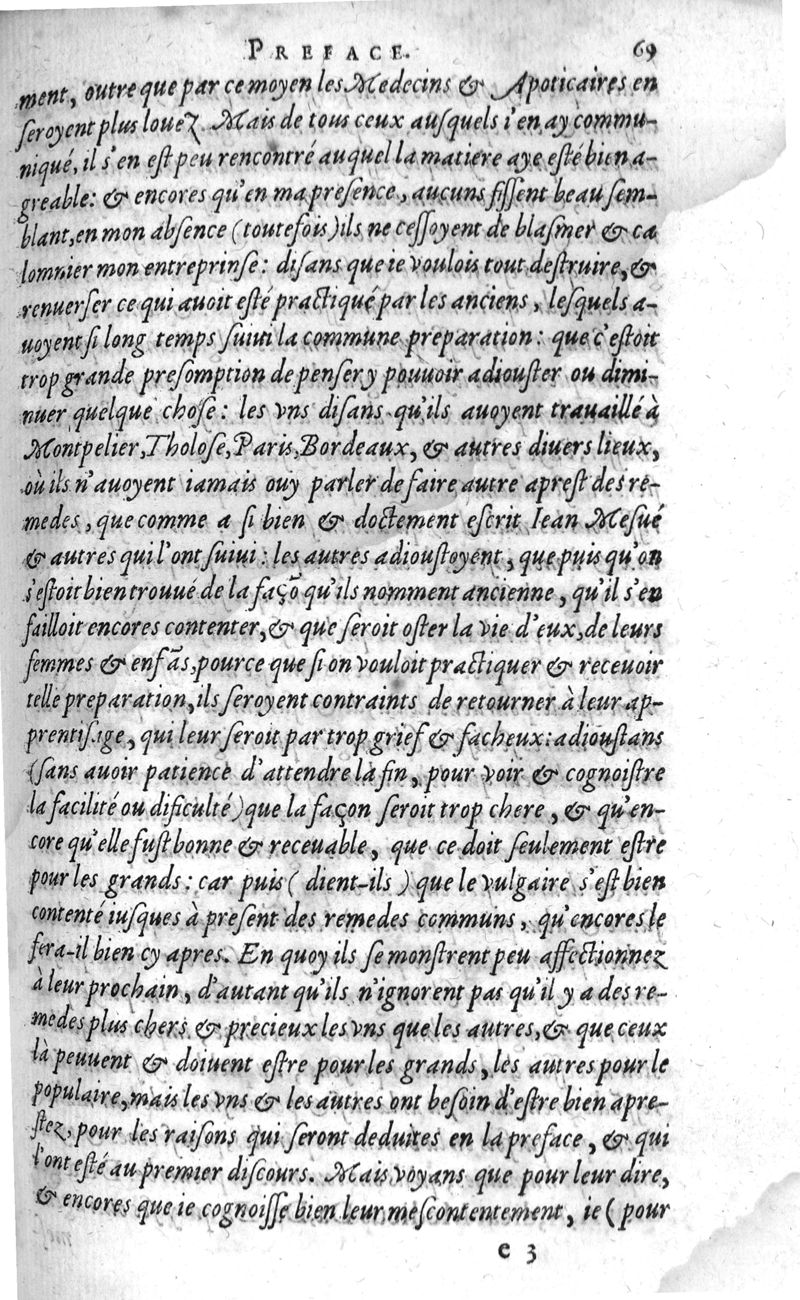 PREFACE. 69
ment, outre que par ce moyen les Medecins & Apoticaires en
ſeroyent plus louez. Mais de tous ceux auſquels i'en ay commu-
niqué, il s'en eſt peu rencontré auquel la matiere aye eſté bien a-
greable: & encores qu'en ma preſence, aucuns fiſſent beau ſem-
blant, en mon abſence (toutefois) ils ne ceſſoyent de blaſmer & ca
lomnier mon entreprinſe: diſans que ie voulois tout deſtruire, &
renuerſer ce qui auoit eſté practiqué par les anciens, leſquels a-
uoyent ſi long temps ſuiui la commune preparation: que c'eſtoit
trop grande preſomption de penſer y pouuoir adiouſter ou dimi-
nuer quelque choſe: les vns diſans qu'ils auoyent trauaillé à
Montpelier, Tholoſe, Paris, Bordeaux, & autres diuers lieux,
où ils n'auoyent iamais ouy parler de faire autre apreſt des re-
medes, que comme a ſi bien & doctement eſcrit Iean Meſué
& autres qui l'ont ſuiui: les autres adiouſtoyent, que puis qu'on
s'eſtoit bien trouué de la façõ qu'ils nomment ancienne, qu'il s'en
failloit encores contenter, & que ſeroit oſter la vie d'eux, de leurs
femmes & enfãs, pource que ſi on vouloit practiquer & receuoir
telle preparation, ils ſeroyent contraints de retourner à leur ap-
prentiſſage, qui leur ſeroit par trop grief & facheux: adiouſtans
(ſans auoir patience d'attendre la fin, pour voir & cognoiſtre
la facilité ou dificulté) que la façon ſeroit trop chere, & qu'en-
core qu'elle fuſt bonne & receuable, que ce doit ſeulement eſtre
pour les grands: car puis (dient-ils) que le vulgaire s'eſt bien
contenté iuſques à preſent des remedes communs, qu'encores le
fera-il bien cy apres. En quoy ils ſe monſtrent peu affectionnez
à leur prochain, d'autant qu'ils n'ignorent pas qu'il y a des re-
medes plus chers & precieux les vns que les autres, & que ceux
là peuuent & doiuent eſtre pour les grands, les autres pour le
populaire, mais les vns & les autres ont beſoin d'eſtre bien apre-
ſtez, pour les raiſons qui ſeront deduites en la preface, & qui
l'ont eſté au premier diſcours. Mais voyans que pour leur dire,
& encores que ie cognoiſſe bien leur meſcontentement, ie (pour
C 3